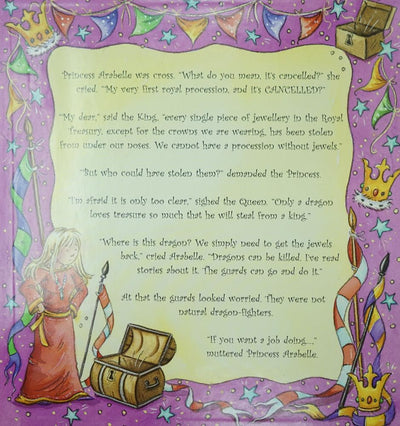 Princess Arabelle was cross. "What do you mean, it's cancelled?" she
cried. "My very first royal procession, and it's CANCELLED?"
"My dear," said the King, "every single piece of jewellery in the Royal
Treasury, except for the crowns we are wearing, has been stolen
from under our noses. We cannot have a procession without jewels."
"But who could have stolen them?" demanded the Princess.
"I'm afraid it is only too clear," sighed the Queen. "Only a dragon
loves treasure so much that he will steal from a king."
"Where is this dragon? We simply need to get the jewels
back," cried Arabelle. "Dragons can be killed. I've read
stories about it. The guards can go and do it."
At that the guards looked worried. They were not
natural dragon-fighters.
"If you want a job doing...,"
muttered Princess Arabelle.